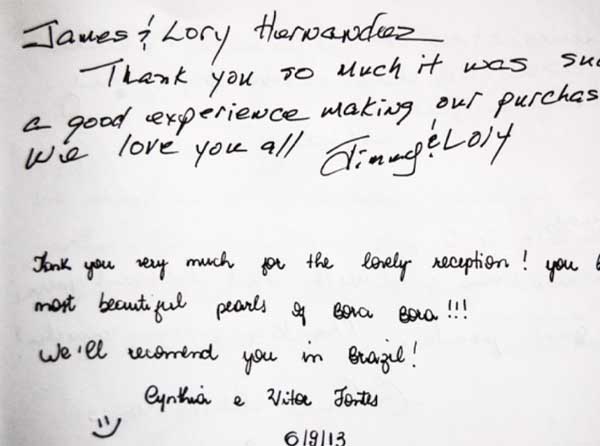 James & Lory Hernandez
Thank you so much it was suc
a good experience making our purchas
We love you all Jimmy & Lory
Tank you very much for the lovely reception! you
most beautiful pearls of Bora Bora!!!
We'll recomend you in Brazil!
Cynthia e Vitor Fortes
6/9/13